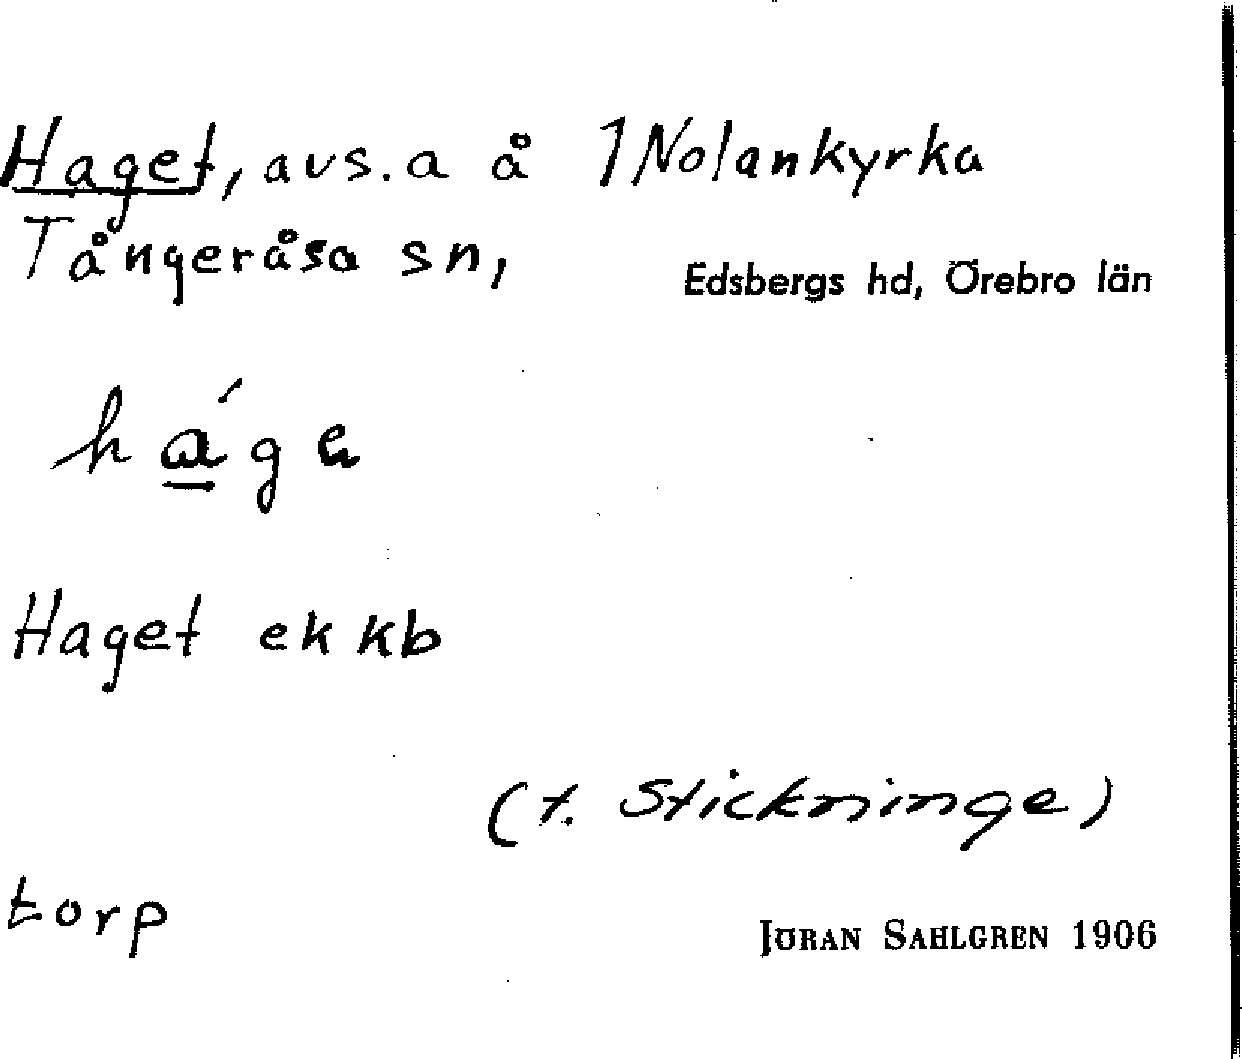 Haget, avs. a å 1 Nolankyrka
Tångeråsa sn,
Edsbergs hd, Örebro län
Haget ek kb
(t. Stickninge)
torp
JÖRAN SAHLGREN 1906